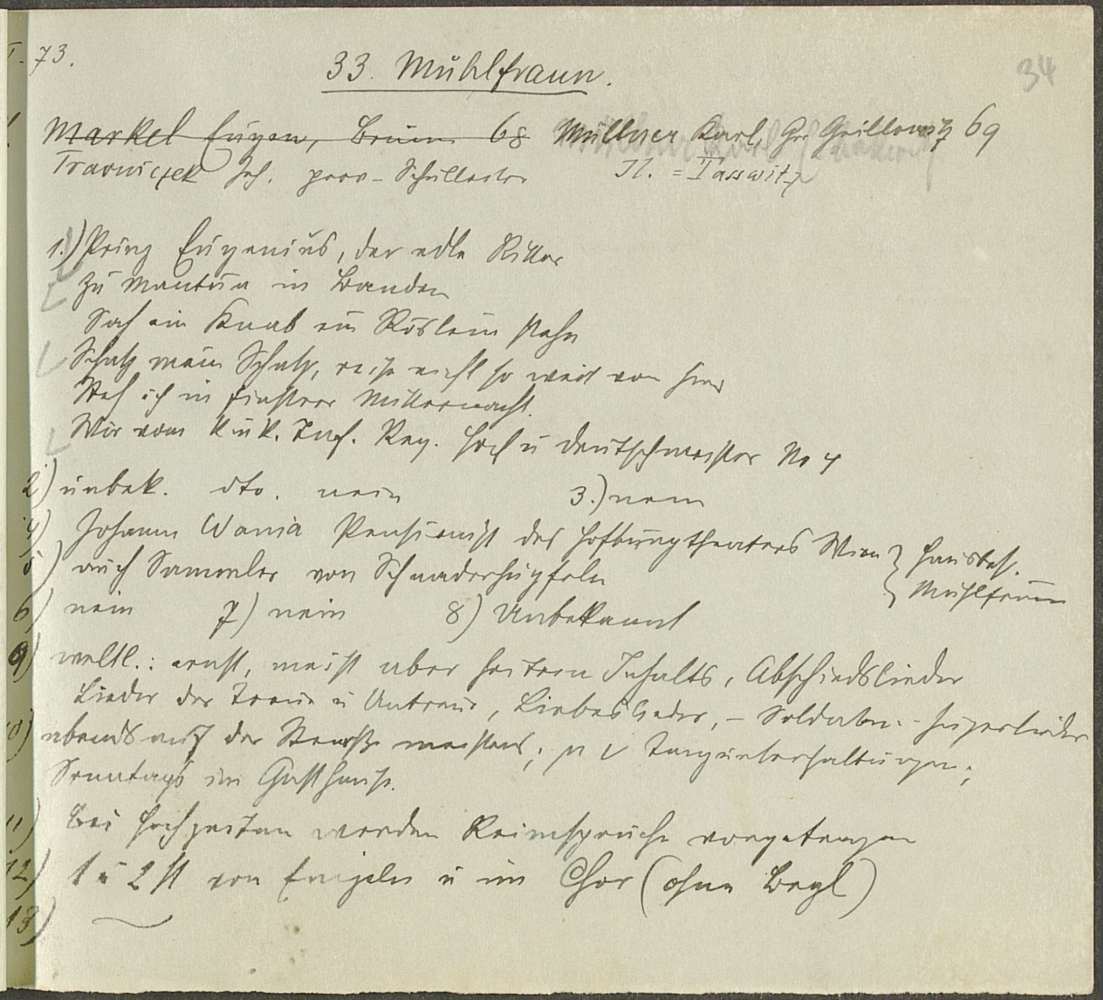 I. 73.
33. Mühlfraun.
34
Markel Eugen, Brünn 68 Müllner Karl, Gr Grillowitz 69
Travniczek Joh. prov-Schulleiter Jl. = Tasswitz
1.) Prinz Eugenius, der edle Ritter
Zu Mantua in Banden
Sah ein Knab ein Röslein stehn
Schatz mein Schatz, reise nicht so weit von hier
Steh ich in finstrer Mitternacht.
Wir vom k. u. k. Inf. Reg. Hoch u Deutschmeister No 4
2) unbek. dto. nein 3.) nein
4) Johann Wania Pensionist des Hofburgtheaters Wien } Hausbes.
5) auch Sammler von Schnaderhüpfeln } Mühlfraun
6) nein 7) nein 8) Unbekannt
9) weltl.: ernst, meist aber heitern Inhalts, Abschiedslieder
Lieder der Treue u Untreue, Liebeslieder, – Soldaten-
10) abends auf der Strasse meistens; Tanzunterhaltungen;
Sonntags im Gasthause.
11) bei Hochzeiten werden Reimsprüche vorgetragen
12) 1 u 2 st von Einzeln u im Chor (ohne Begl)
13) —